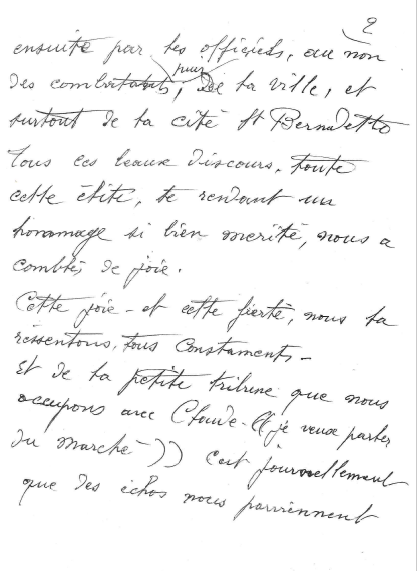 2
ensuite par les officiels, au non
des combatants, puis De la ville, et
surtout de la cité St Bernadette
Tous ces beaux discours, toute
cette élite, te rendant un
hommage si bien merité, nous a
comblés de joie.
Cette joie - et cette fierté, nous la
ressentons, tous Constaments -
Et de la petite tribune que nous
occupons avec Claude - ((je veux parler
du Marché - )) c'est journellement
que des échos nous parviennent